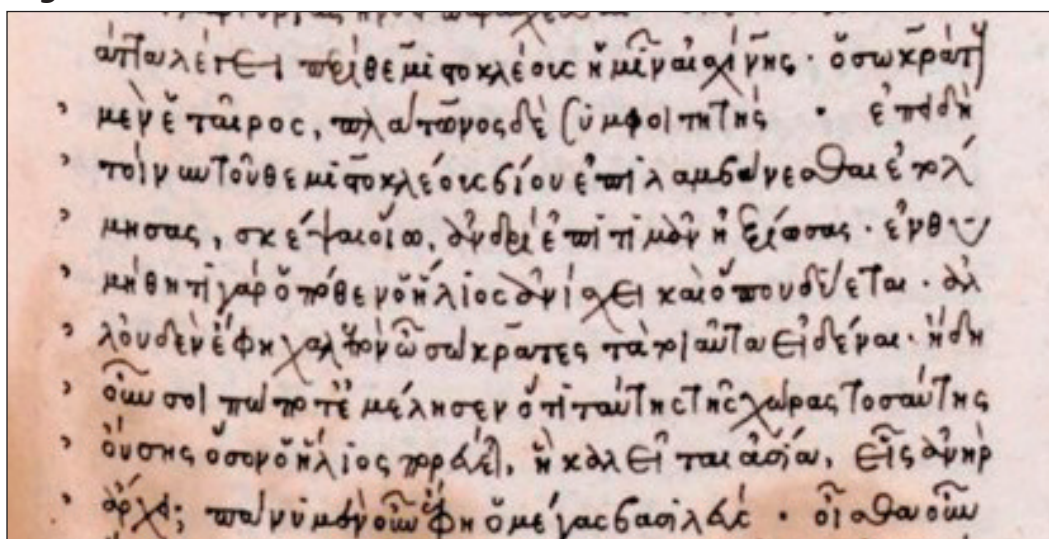 ἀντιλέγει περὶ θεμιστοκλέους ἡμῖν αἰσχίνης · ὁ σωκράτους
μὲν ἑταῖρος, πλάτωνος δὲ συμφοιτητής · ἐπειδὴ
τοίνυν τοῦ θεμιστοκλέους βίου ἐπιλαμβάνεσθαι ἐτόλ
μησας, σκέψαι οἵω, ἀνδρὶ ἐπιτιμᾶν ἠξίωσας · ἐνθυ
μήθητι γὰρ ὁπόθεν ὁ ἥλιος ἀνίσχει καὶ ὅπου δύεται · ἀλ
λ' οὐδὲν ἔφη χαλεπὸν ὦ σώκρατες τὰ τοιαῦτα εἰδέναι · ἤδη
οὖν σοι πώποτε ἐμέλησεν ὅτι ταύτης τῆς χώρας τοσαύτης
οὔσης ὅσον ὁ ἥλιος πορεύεται, ἣ καλεῖται ἀσία, εἷς ἀνὴρ
ἄρχει; πάνυ μὲν οὖν ἔφη ὁ μέγας βασιλεύς · οἶσθα οὖν